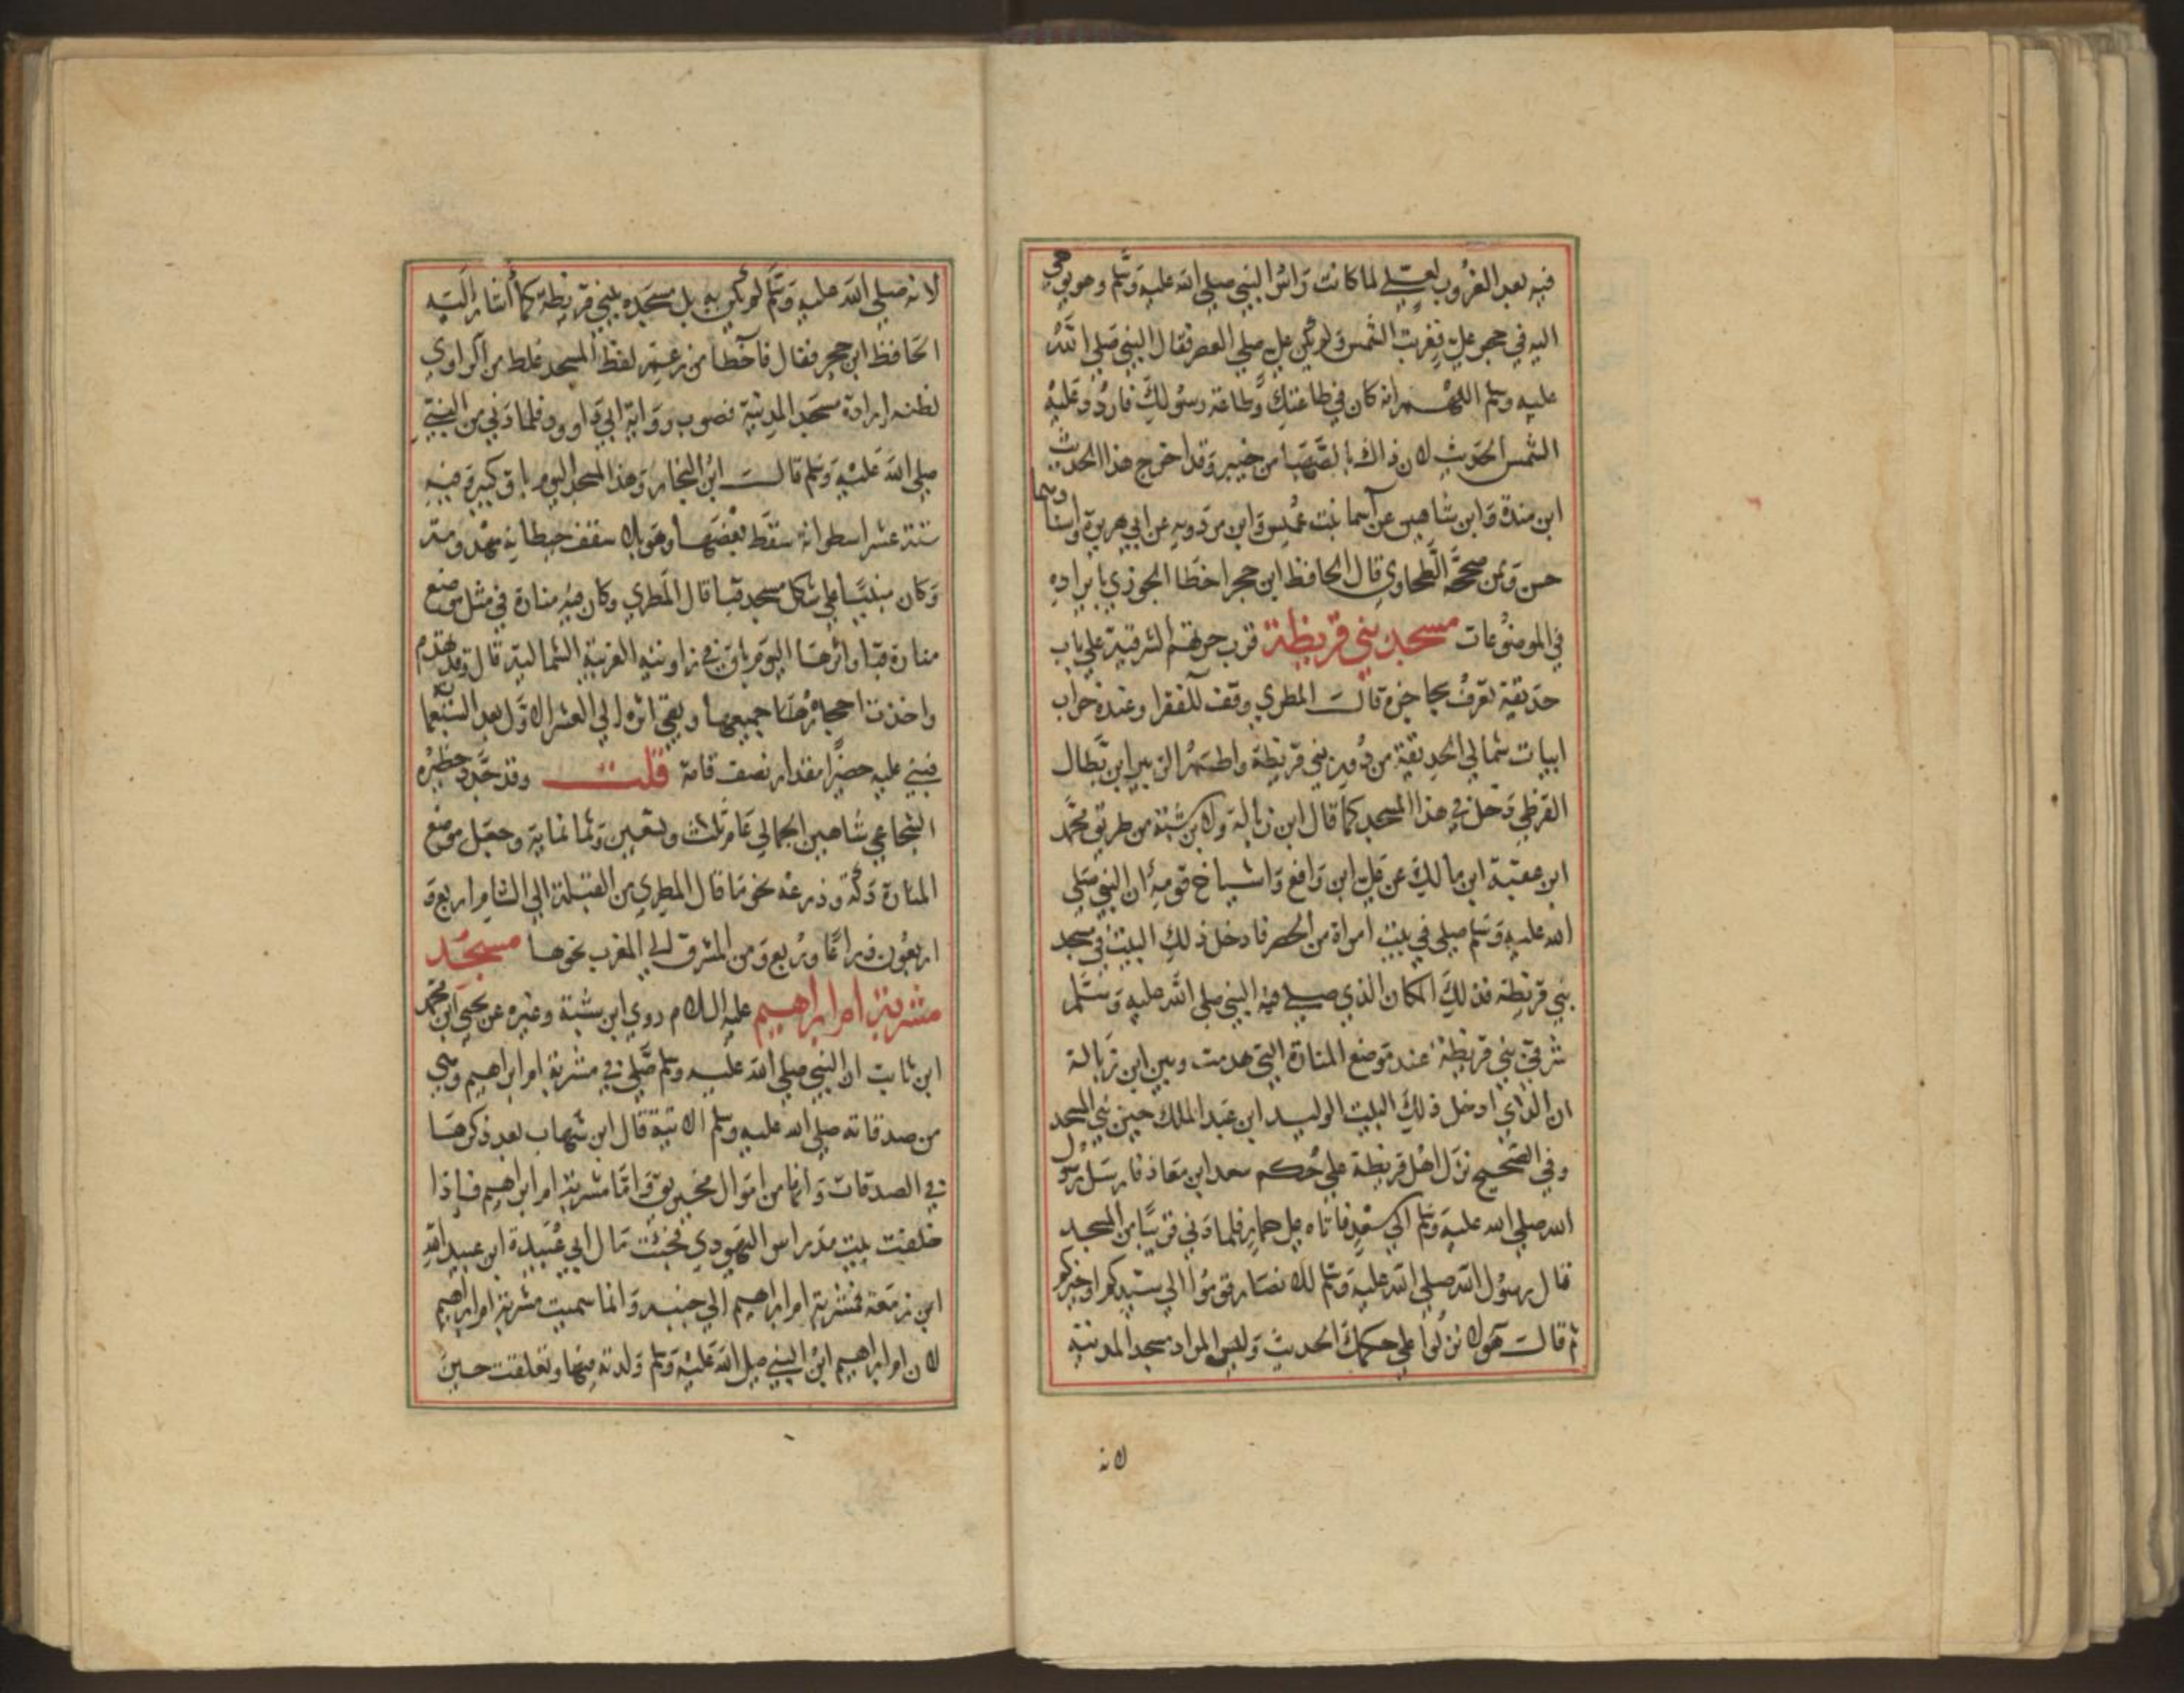 فيه بعد الغروب لعلي لما كانت راس النبي صلي الله عليه وسلم وهو يوحي
اليه في حجر علي فغربت الشمس ولم يكن علي صلي العصر فقال النبي صلي الله
عليه وسلم اللهم انه كان في طاعتك وطاعة رسولك فاردد عليه
الشمس الحديث لان ذاك بالصهبا من خيبر وقد اخرج هذا الحديث
ابن مندة وابن شاهين عن اسما بنت عميس وابن مردويه عن ابي هريرة واسنادهما
حسن وممن صححه الطحاوي قال الحافظ ابن حجر اخطا الجوزي بايراده
في الموضوعات مسجد بني قريظة قرب حرتهم الشرقية علي باب
حديقة تعرف بحاجزة قال المطري وقف للفقرا وعنده خراب
ابيات شمالي الحديقة من دور بني قريظة واطم الزبير ابن بطال
القرظي دخل في هذا المسجد كما قال ابن زبالة ولابن شبة من طريق محمد
ابن عقبة ابن مالك عن علي ابن رافع واشياخ قومه ان النبي صلي
الله عليه وسلم صلي في بيت امراة من الحضر فادخل ذلك البيت في مسجد
بني قريظة فذلك المكان الذي صلي فيه النبي صلي الله عليه وسلم
شرقي بني قريظة عند موضع المنارة التي هدمت وبين ابن زبالة
ان الذي ادخل ذلك البيت الوليد ابن عبد الملك حين بني المسجد
وفي الصحيح نزل اهل قريظة علي حكم سعد ابن معاذ فارسل رسول
الله صلي الله عليه وسلم الي سعد فاتاه علي حمار فلما دني قريبًا من المسجد
قال رسول الله صلي الله عليه وسلم للانصار قوموا الي سيدكم او خيركم
ثم قال هولا نزلوا علي حكمك الحديث وليس المراد مسجد المدينة
لانه
لانه صلي الله عليه وسلم لم يكن به بل مسجده ببني قريظة كما اشار اليه
الحافظ ابن حجر فقال فاخطا من زعم لفظ المسجد غلط من الراوي
لظنه ارادة مسجد المدينة فصوب رواية ابي داوود فلما دني من النبي
صلي الله عليه وسلم قال ابن النجار وهذا المسجد اليوم باق كبير وفيه
ستة عشر اسطوانة سقط بعضها وهو بلا سقف حيطانه مهدومة
وكان مبنيًا علي شكل مسجد قبا قال المطري وكان فيه منارة في مثل موضع
منارة قبا واثرها اليوم باق في زاويته الغربية الشمالية قال وقد تهدم
واخذت احجارها جميعها وبقي اثره الي العشر الاول بعد السبعماية
فبني عليه حضيرًا مقدار نصف قامة قلت وقد جدد حظيره
الشجاعي شاهين الجمالي عام ثلاث وتسعين وثمانماية وجعل موضع
المنارة دكة وذرعه نحو ما قال المطري من القبلة الي الشام اربع و
اربعون ذراعًا وربع ومن المشرق الي المغرب نحوها مسجد
مشربة ام ابراهيم عليه السلام روي ابن شبة وغيره عن يحيي ابن محمد
ابن ثابت ان النبي صلي الله عليه وسلم صلي في مشربة ام ابراهيم وهي
من صدقاته صلي الله عليه وسلم الاتية قال ابن شهاب بعد ذكرها
في الصدقات وانها من اموال مخيريق واما مشربة ام ابراهيم فاذا
خلفت بيت مدراس اليهودي فجئت مال ابي عبيدة ابن عبيد الله
ابن زمعة فمشربة ام ابراهيم الي جنبه وانما سميت مشربة ام ابراهيم
لان ام ابراهيم ابن النبي صلي الله عليه وسلم ولدته فيها وتعلقت حين